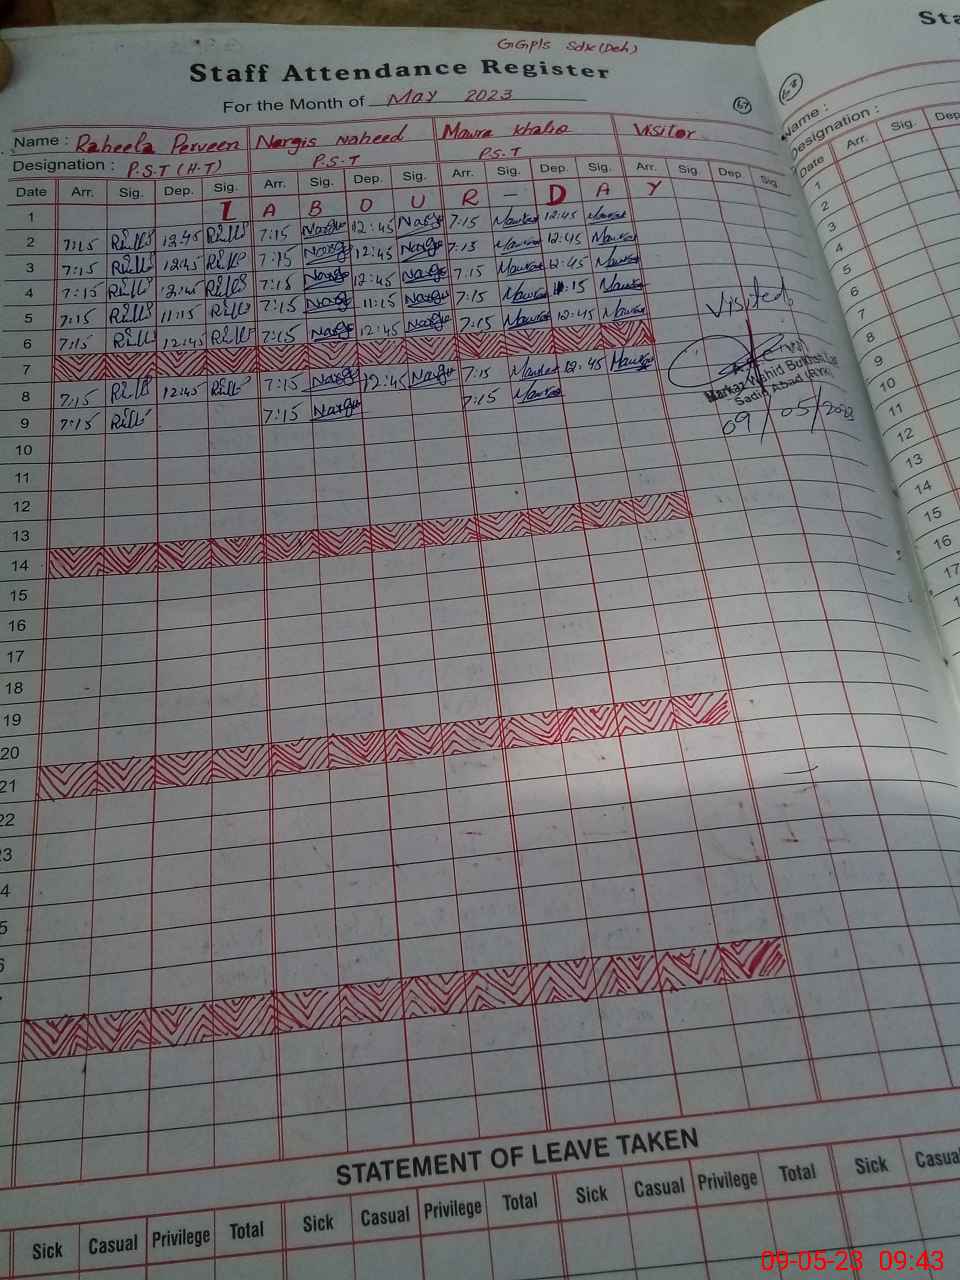 GGpls Sdx (Deh)
Staff Attendance Register
For the Month of May 2023
67
Name : Raheela Perveen Nargis Naheed Mawra Khalid Visitor
Designation : P.S.T (H.T) P.S.T P.S.T
Date Arr. Sig. Dep. Sig. Arr. Sig. Dep. Sig. Arr. Sig. Dep. Sig. Arr. Sig. Dep. Sig
1 L A B O U R - D A Y
2 7:15 12:45 7:15 Nargis 12:45 Nargis 7:15 Mawra 12:45 Mawra
3 7:15 12:45 7:15 Nargis 12:45 Nargis 7:15 Mawra 12:45 Mawra
4 7:15 12:45 7:15 Nargis 12:45 Nargis 7:15 Mawra 12:45 Mawra
5 7:15 11:15 7:15 Nargis 11:15 Nargis 7:15 Mawra 11:15 Mawra
6 7:15 12:45 7:15 Nargis 12:45 Nargis 7:15 Mawra 12:45 Mawra
7
8 7:15 12:45 7:15 Nargis 12:45 Nargis 7:15 Mawra 12:45 Mawra
9 7:15 7:15 Nargis 7:15 Mawra
Visited
Markaz Wahid Bukhsh Lar
Sadiq Abad (RYK)
09/05/2023
10
11
12
13
14
15
16
17
18
19
20
21
22
23
4
5
6
STATEMENT OF LEAVE TAKEN
Sick Casual Privilege Total Sick Casual Privilege Total Sick Casual Privilege Total Sick Casual
68
Sta
Name :
Designation :
Date Arr. Sig. Dep
1
2
3
4
5
6
7
8
9
10
11
12
13
14
15
16
17
09-05-23 09:43